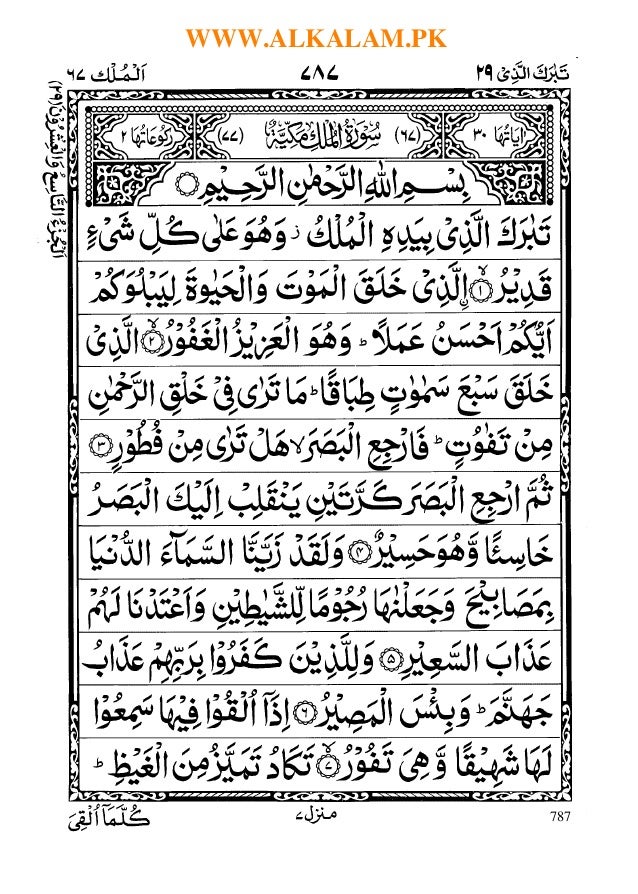 WWW.ALKALAM.PK
تَبٰرَكَ الَّذِیْ ٢٩
٧٨٧
اَلْمُلْك ٦٧
اَلْجُزْءُ التَّاسِعُ وَالْعِشْرُوْنَ (٢٩)
اٰیَاتُهَا ٣٠
(٦٧) سُوْرَةُ الْمُلْكِ مَکِّیَّةٌ (٧٧)
رُکُوْعَاتُهَا ٢
بِسْمِ اللّٰهِ الرَّحْمٰنِ الرَّحِیْمِ
تَبٰرَكَ الَّذِیْ بِیَدِهِ الْمُلْكُ ز وَهُوَ عَلٰی كُلِّ شَیْءٍ
قَدِیْرُ ۙ﴿١﴾ اِۨلَّذِیْ خَلَقَ الْمَوْتَ وَالْحَیٰوةَ لِیَبْلُوَكُمْ
اَیُّكُمْ اَحْسَنُ عَمَلًا ؕ وَهُوَ الْعَزِیْزُ الْغَفُوْرُ ۙ﴿٢﴾ الَّذِیْ
خَلَقَ سَبْعَ سَمٰوٰتٍ طِبَاقًا ؕ مَا تَرٰی فِیْ خَلْقِ الرَّحْمٰنِ
مِنْ تَفٰوُتٍ ؕ فَارْجِعِ الْبَصَرَ ۙ هَلْ تَرٰی مِنْ فُطُوْرٍ ﴿٣﴾
ثُمَّ ارْجِعِ الْبَصَرَ كَرَّتَیْنِ یَنْقَلِبْ اِلَیْكَ الْبَصَرُ
خَاسِئًا وَّهُوَ حَسِیْرٌ ﴿٤﴾ وَلَقَدْ زَیَّنَّا السَّمَآءَ الدُّنْیَا
بِمَصَابِیْحَ وَجَعَلْنٰهَا رُجُوْمًا لِّلشَّیٰطِیْنِ وَاَعْتَدْنَا لَهُمْ
عَذَابَ السَّعِیْرِ ﴿٥﴾ وَلِلَّذِیْنَ كَفَرُوْا بِرَبِّهِمْ عَذَابُ
جَهَنَّمَ ؕ وَبِئْسَ الْمَصِیْرُ ﴿٦﴾ اِذَاۤ اُلْقُوْا فِیْهَا سَمِعُوْا
لَهَا شَهِیْقًا وَّهِیَ تَفُوْرُ ۙ﴿٧﴾ تَكَادُ تَمَیَّزُ مِنَ الْغَیْظِ ؕ
787
منزل ٧
كُلَّمَاۤ اُلْقِیَ